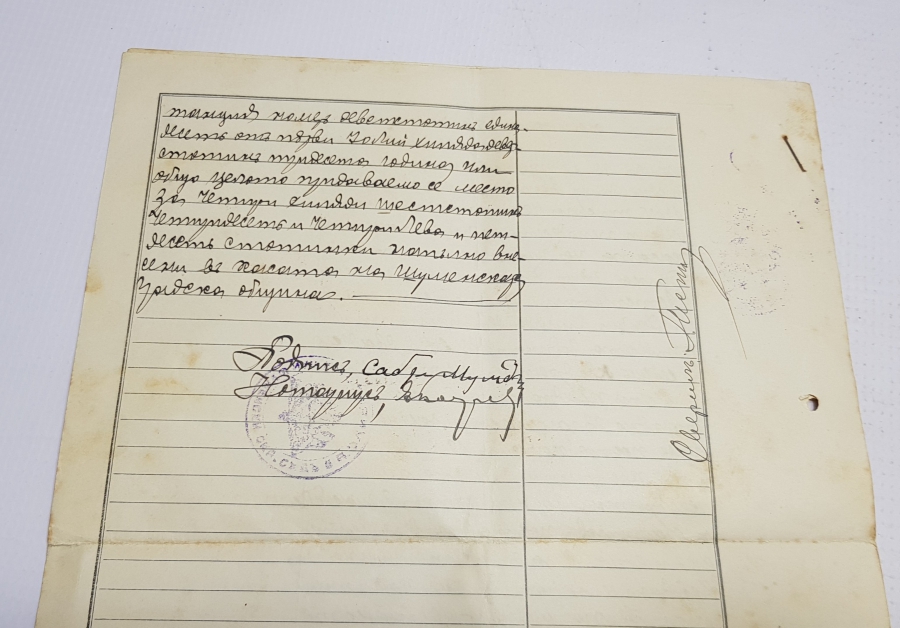 танция номеръ деветстотинъ едина-
десетъ отъ първи Юлий хиляда девет-
стотинъ тридесета година или
общо цялото придаваемо се место
за четири хиляди шестстотинъ
четиридесетъ и четири лева и пет-
десетъ стотинки напълно вне-
сени въ касата на Шуменска
Градска община.
Подпись, Сабри
Нотариусъ,
Сверилъ: